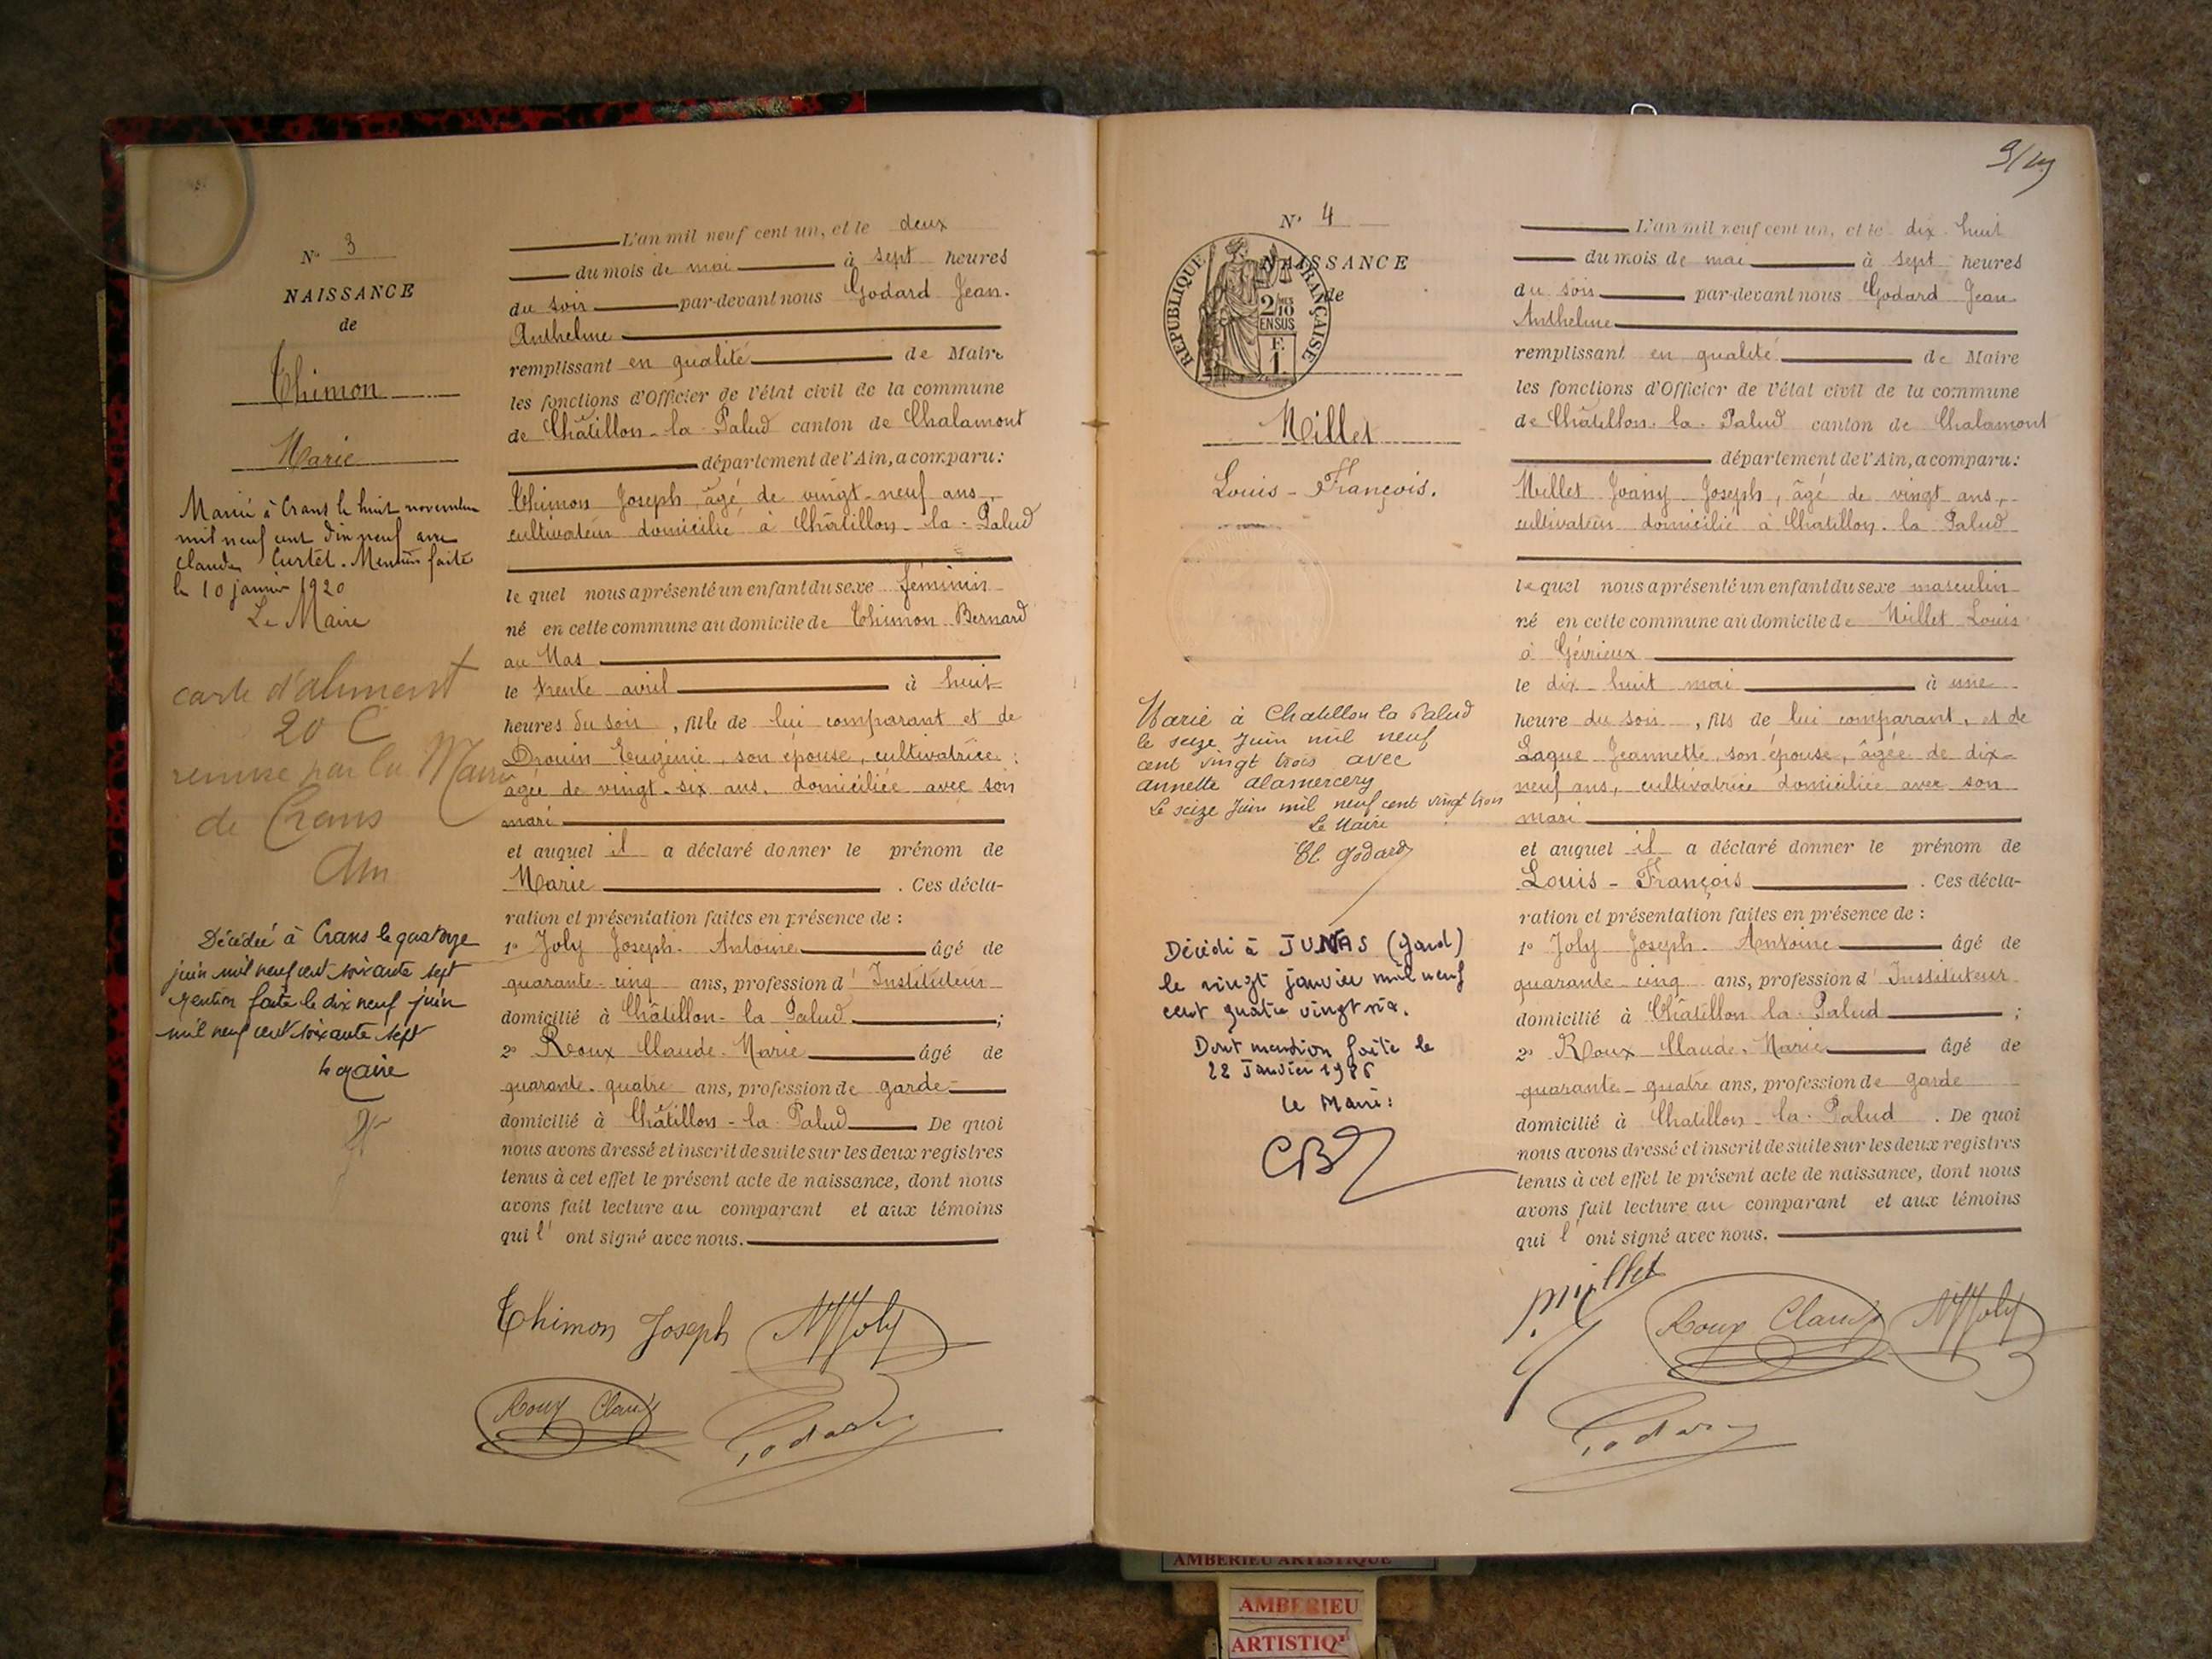 N° 3
NAISSANCE
de
Thimon
Marie
Mariée à Crans le huit novembre
mil neuf cent dix neuf avec
Claude Curtet. Mention faite
le 10 janvier 1920
Le Maire
carte d'aliment
20 C
remise par la Mairie
de Crans
Ain
Décédée à Crans le quatorze
juin mil neuf cent soixante sept
mention faite le dix neuf juin
mil neuf cent soixante sept
le maire
L'an mil neuf cent un, et le deux
du mois de mai à sept heures
du soir par-devant nous Godard Jean.
Anthelme
remplissant en qualité de Maire
les fonctions d'Officier de l'état civil de la commune
de Châtillon-la-Palud canton de Chalamont
département de l'Ain, a comparu:
Thimon Joseph, âgé de vingt-neuf ans,
cultivateur domicilié à Châtillon-la-Palud
le quel nous a présenté un enfant du sexe féminin
né en cette commune au domicile de Thimon Bernard
au Mas
le trente avril à huit
heures du soir, fille de lui comparant et de
Drouin Eugénie, son épouse, cultivatrice,
âgée de vingt-six ans, domiciliée avec son
mari
et auquel il a déclaré donner le prénom de
Marie. Ces décla-
ration et présentation faites en présence de:
1° Joly Joseph-Antoine âgé de
quarante-cinq ans, profession d'Instituteur
domicilié à Châtillon-la-Palud;
2° Roux Claude-Marie âgé de
quarante-quatre ans, profession de garde
domicilié à Châtillon-la-Palud De quoi
nous avons dressé et inscrit de suite sur les deux registres
tenus à cet effet le présent acte de naissance, dont nous
avons fait lecture au comparant et aux témoins
qui l'ont signé avec nous.
Thimon Joseph Joly
Roux Claude Godard
N° 4
NAISSANCE
de
REPUBLIQUE FRANÇAISE
2/10
EN SUS
F.
1
Millet
Louis-François.
Marié à Chatillon la Palud
le seize Juin mil neuf
cent vingt trois avec
Annette Alamercery
Le seize Juin mil neuf cent vingt trois
Le Maire
Cl Godard
Décédé à JUNAS (Gard)
le vingt janvier mil neuf
cent quatre vingt six.
Dont mention faite le
22 Janvier 1986
Le Maire:
L'an mil neuf cent un, et le dix-huit
du mois de mai à sept heures
du soir par-devant nous Godard Jean
Anthelme
remplissant en qualité de Maire
les fonctions d'Officier de l'état civil de la commune
de Châtillon-la-Palud canton de Chalamont
département de l'Ain, a comparu:
Millet Joany Joseph, âgé de vingt ans,
cultivateur domicilié à Chatillon-la-Palud
le quel nous a présenté un enfant du sexe masculin
né en cette commune au domicile de Millet Louis
à Gévrieux
le dix-huit mai à une
heure du soir, fils de lui comparant, et de
Laque Jeannette, son épouse, âgée de dix-
neuf ans, cultivatrice domiciliée avec son
mari
et auquel il a déclaré donner le prénom de
Louis-François. Ces décla-
ration et présentation faites en présence de:
1° Joly Joseph-Antoine âgé de
quarante-cinq ans, profession d'Instituteur
domicilié à Châtillon-la-Palud;
2° Roux Claude-Marie âgé de
quarante-quatre ans, profession de garde
domicilié à Chatillon-la-Palud. De quoi
nous avons dressé et inscrit de suite sur les deux registres
tenus à cet effet le présent acte de naissance, dont nous
avons fait lecture au comparant et aux témoins
qui l'ont signé avec nous.
Millet Roux Claude Joly
Godard
AMBERIEU ARTISTIQUE
AMBERIEU
ARTISTIQ